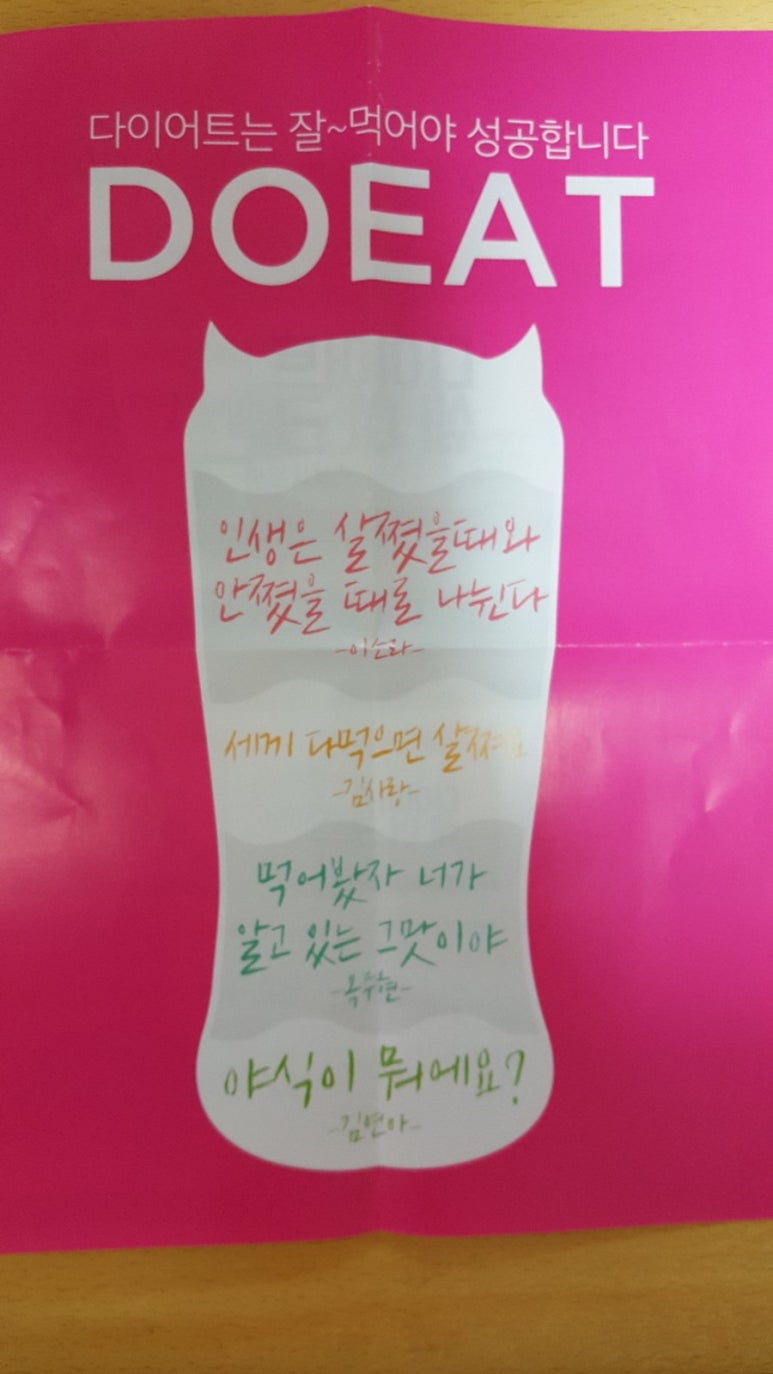 다이어트는 잘~먹어야 성공합니다
DOEAT
인생은 살쪘을때와
안쪘을 때로 나뉜다
-이소라-
세끼 다먹으면 살쪄요
-김사랑-
먹어봤자 너가
알고 있는 그맛이야
-옥주현-
야식이 뭐에요?
-김연아-